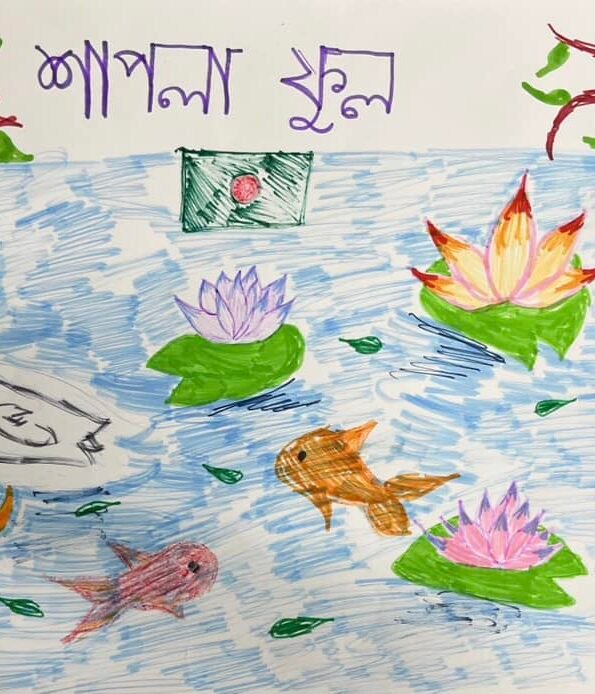 শাপলা ফুল